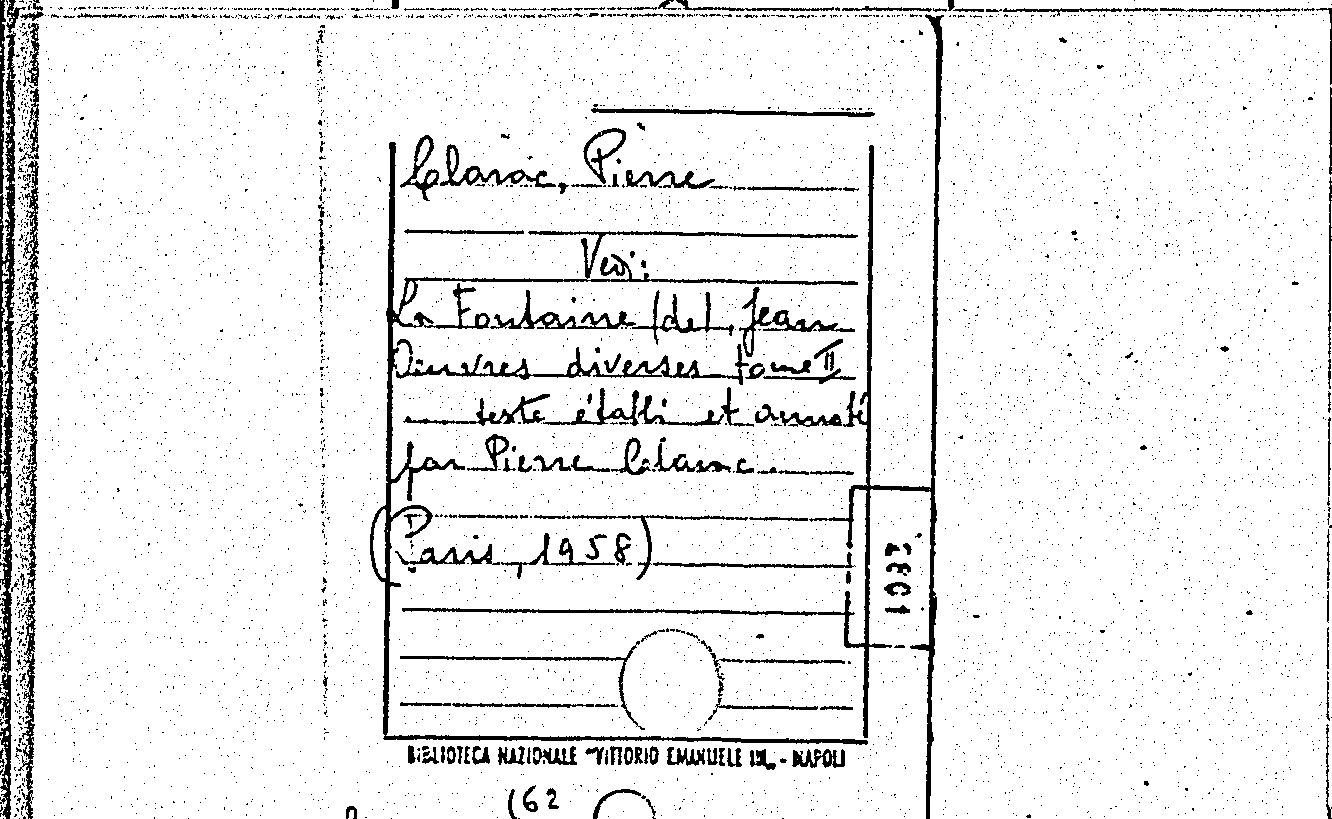 Clarac, Pierre
Vedi:
La Fontaine (de), Jean
Oeuvres diverses tome II
... texte établi et annoté
par Pierre Clarac.
(Paris, 1958)
1087
BIBLIOTECA NAZIONALE "VITTORIO EMANUELE III" - NAPOLI
(62